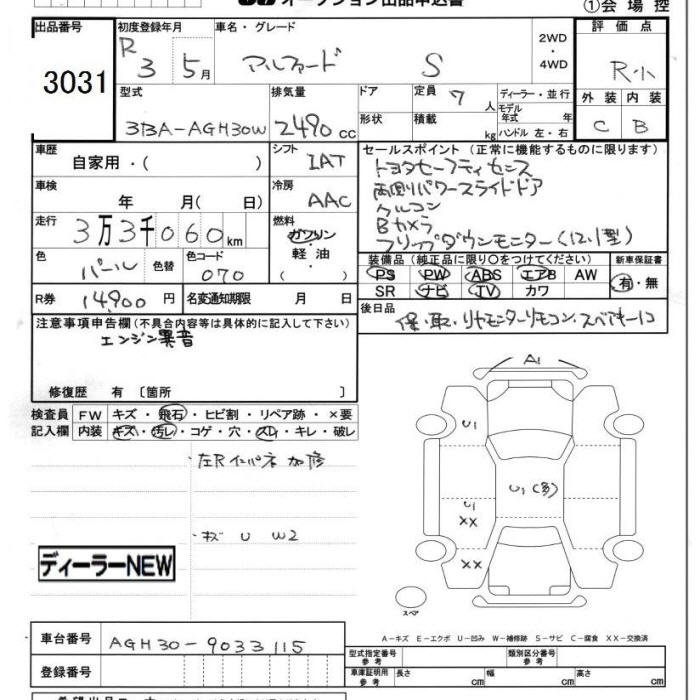 オークション出品申込書
①会場控
出品番号
3031
初度登録年月
R 3 5月
車名・グレード
アルファード S
2WD
・
4WD
評価点
R小
外装 内装
C B
型式
3BA-AGH30W
排気量
2490 cc
ドア
形状
定員 7 人
積載 kg
ディーラー・並行
モデル年式 年
ハンドル 左・右
車歴
自家用・( )
シフト
IAT
セールスポイント (正常に機能するものに限ります)
トヨタセーフティセンス
両側パワースライドドア
クルコン
Bカメラ
フリップダウンモニター(12.1型)
車検
年 月( 日)
冷房
AAC
走行
3万3千060km
燃料
ガソリン
・軽油・
( )
色
パール
色替
色コード
070
装備品 (純正品に限り○をつけてください)
PS PW ABS エアB AW
SR ナビ TV カワ
新車保証書
有・無
R券
14,900 円
名変通知期限 月 日
後日品
保・取・リヤモニターリモコン・スペアキーコ
注意事項申告欄(不具合内容等は具体的に記入して下さい)
エンジン異音
修復歴 有 〔箇所 〕
検査員
記入欄
FW キズ・飛石・ヒビ割・リペア跡・×要
内装 キズ・汚レ・コゲ・穴・スレ・キレ・破レ
左Rインパネ加修
キズ U W2
ディーラーNEW
A1
U1
U1(多)
U1
XX
XX
スペア
A−キズ E−エクボ U−凹み W−補修跡 S−サビ C−腐食 XX−交換済
車台番号
AGH30-9033115
登録番号
型式指定番号
参考
類別区分番号
参考
車庫証明用
参考
長さ cm 幅 cm 高さ cm